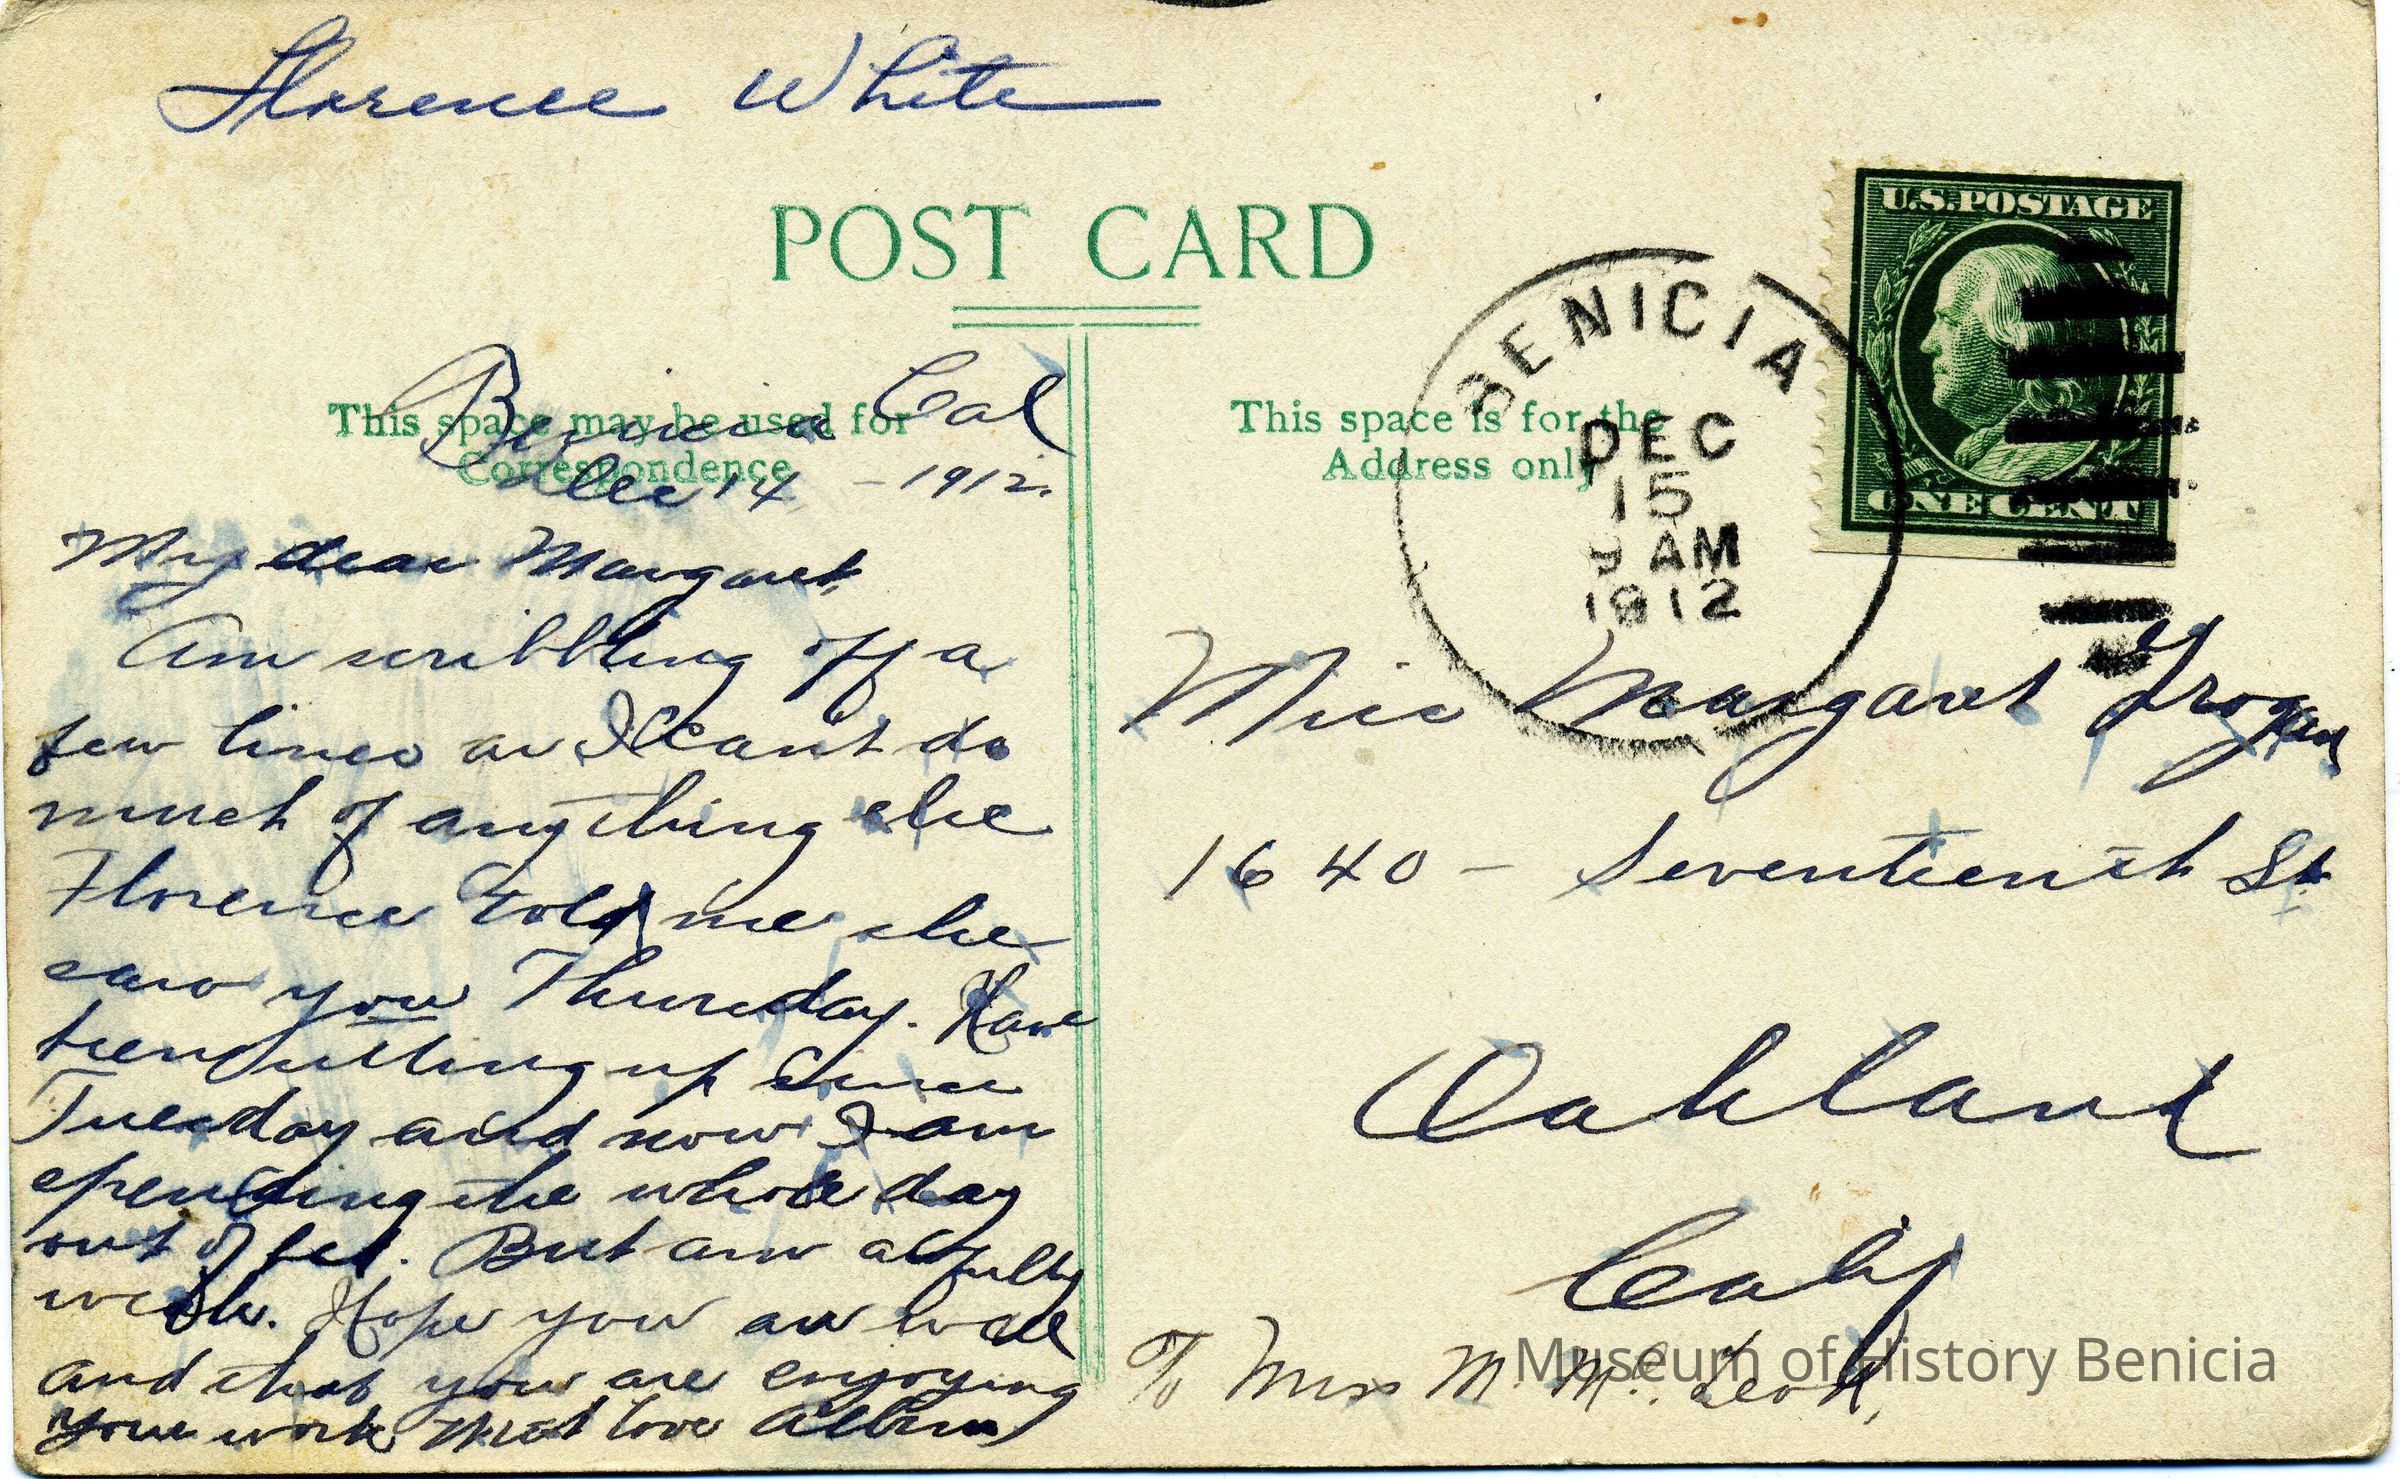 Florence White
POST CARD
This space may be used for
Correspondence
Benicia Cal
Dec 14 - 1912.
My dear Margaret,
Am scribbling off a
few lines as I can't do
much of anything else
Florence told me she
saw you Thursday. Have
been sitting up since
Tuesday and now I am
spending the whole day
out of bed. But am awfully
weak. Hope you are well
and that you are enjoying
your work Much love
This space is for the
Address only
U.S. POSTAGE
ONE CENT
BENICIA
DEC
15
9 AM
1912
Miss Margaret Grogan
1640 - Seventeenth St.
Oakland
Calif
To Miss M. Mc
Museum of History Benicia